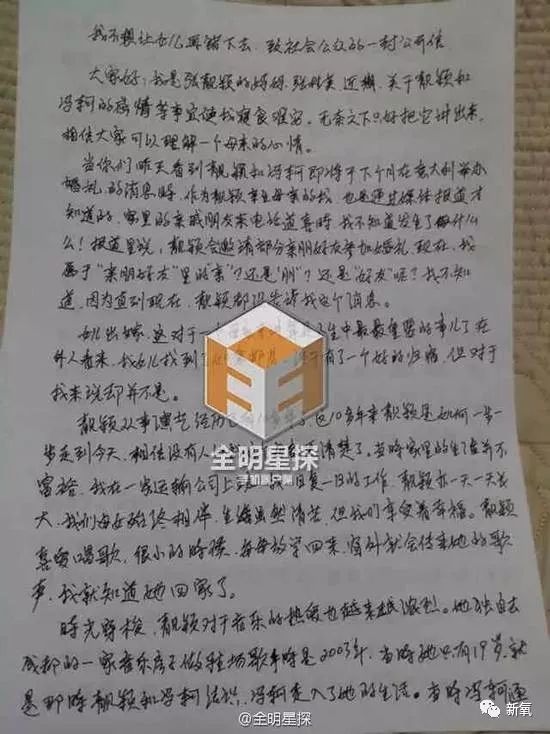 我不想让女儿再错下去,致社会公众的一封公开信
大家好,我是张靓颖的妈妈,张桂英.近期,关于靓颖和
冯轲的婚情等事宜使我寝食难安。无奈之下只好把它讲出来,
相信大家可以理解一个母亲的心情。
当你们昨天看到靓颖和冯轲即将于下个月在意大利举办
婚礼的消息时,作为靓颖亲生母亲的我,也是通过媒体报道才
知道的,家里的亲戚朋友来电话道喜时,我不知道发生了什么
么!报道里说,靓颖会邀请部分亲朋好友参加婚礼,现在,我
属于“亲朋好友”里的“亲”?还是“朋”?还是“好友”呢?我不知
道,因为直到现在,靓颖都没告诉我这个消息。
女儿出嫁,这对于一 生中最最重要的事儿了.在
外人看来,我女儿找到了 有了一个好的归宿,但对于
我来说却并不是。
靓颖从事演艺 这10多年来靓颖是如何一步一
步走到今天,相信没有人 清楚了。当时家里的生活并不
富裕,我在一家运输公司上 日复一日的工作,靓颖亦一天一天长
大,我们母女始终相伴,生活虽然清苦,但我们享受着幸福。靓颖
喜爱唱歌,很小的时候,每每放学回来,窗外就会传来她的歌
声,我就知道她回家了。
时光穿梭,靓颖对于音乐的热爱也越来越浓烈。她独自去
成都的一家音乐房子做驻场歌手时是2003年,当时她只有19岁,就
是那时靓颖和冯轲结识,冯轲走入了她的生活。当时冯轲通
全明星探
@全明星探
新氧